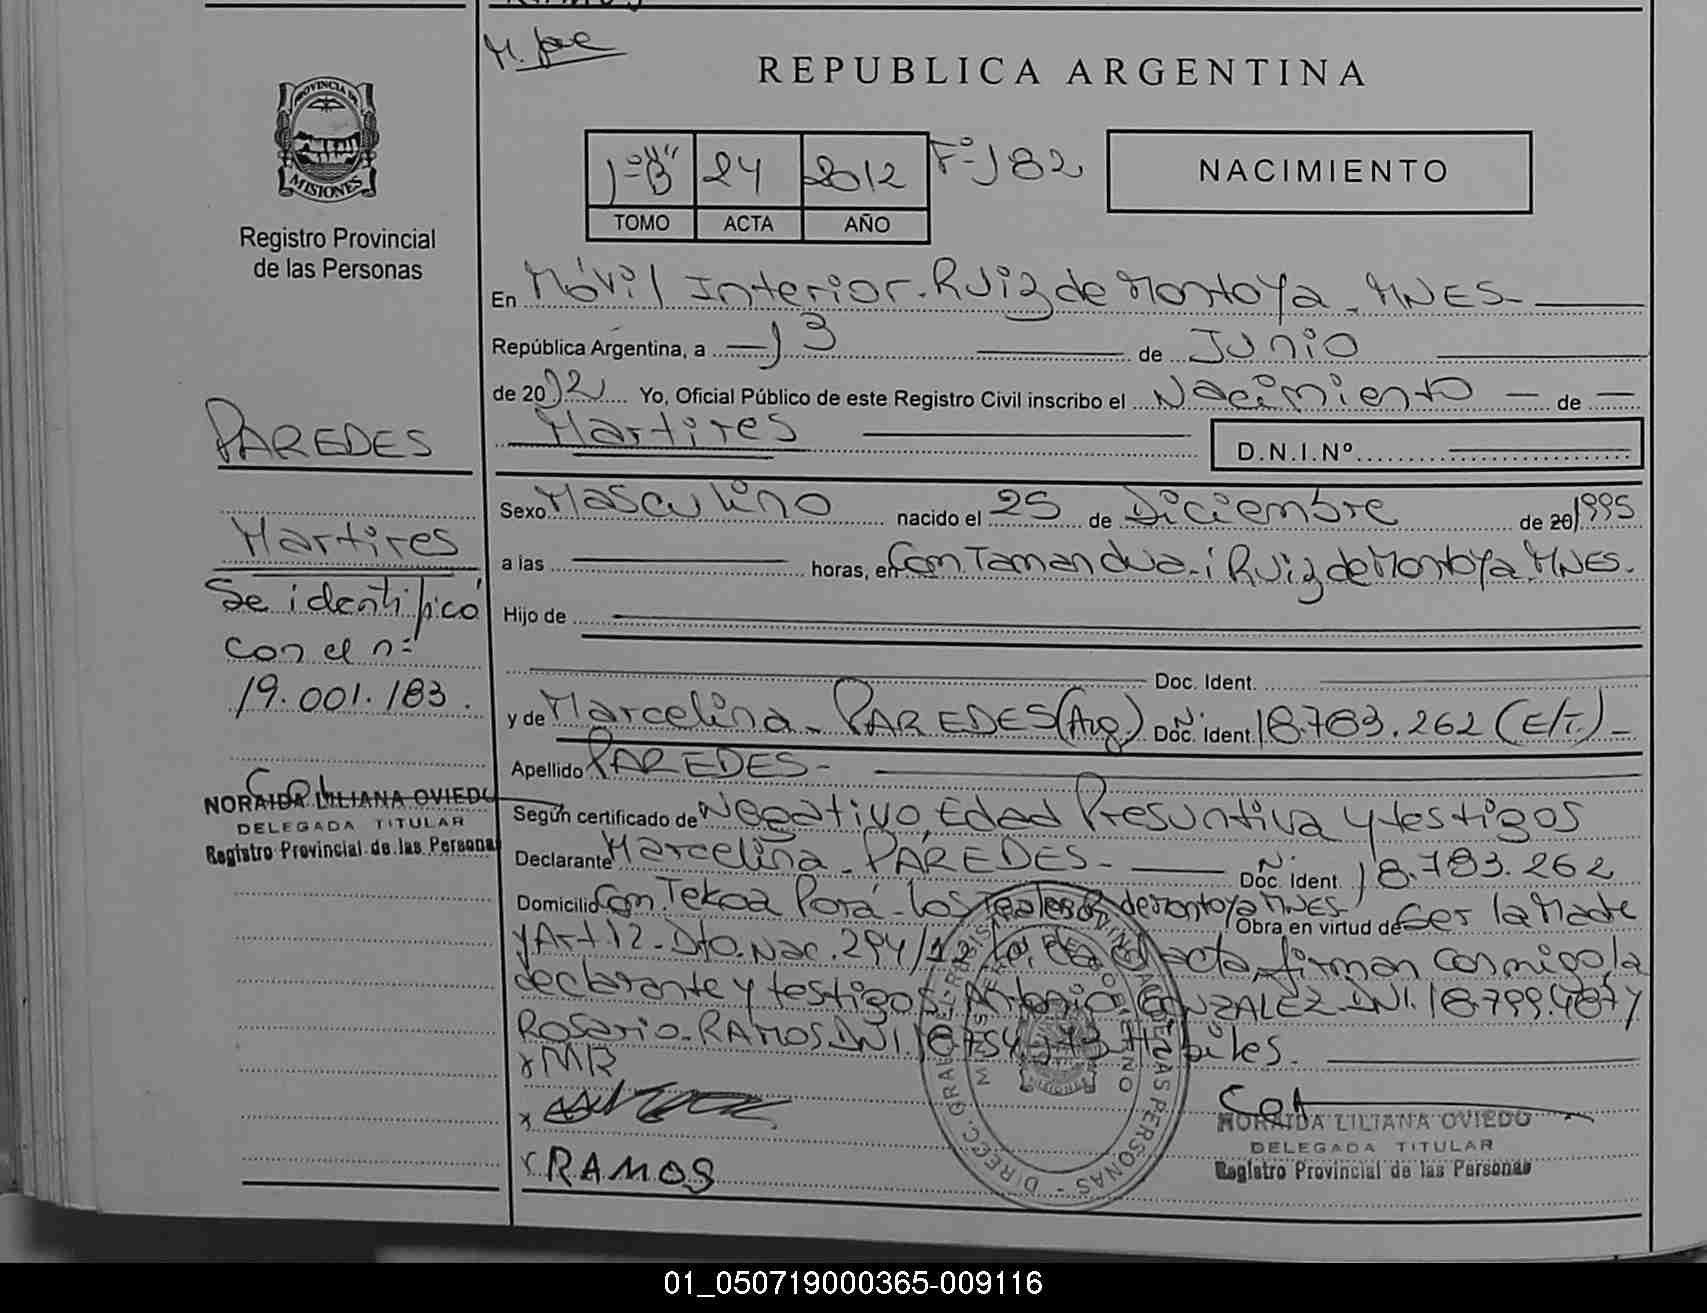 M. José
REPUBLICA ARGENTINA
PROVINCIA DE
MISIONES
Registro Provincial
de las Personas
1º "B" 24 2012 Fº 182
TOMO ACTA AÑO
NACIMIENTO
En Móvil Interior-Ruiz de Montoya-MNES-
República Argentina, a 13 de Junio
de 2012 Yo, Oficial Público de este Registro Civil inscribo el Nacimiento - de -
Martires
D.N.I.Nº
PAREDES
Martires
Se identificó
con el nº
19.001.183.
NORAIDA LILIANA OVIEDO
DELEGADA TITULAR
Registro Provincial de las Personas
Sexo Masculino nacido el 25 de Diciembre de 20 1995
a las horas, en Com Tamandua-i Ruiz de Montoya MNES.
Hijo de
Doc. Ident.
y de Marcelina-PAREDES (Arg.) Nº Doc. Ident. 18.783.262 (E/T.)-
Apellido PAREDES-
Según certificado de Negativo, Edad Presuntiva y testigos
Declarante Marcelina-PAREDES- Nº Doc. Ident. 18.783.262
Domicilio Com Tekoa Porá-Los Teales R de Montoya MNES Obra en virtud de Ser la Madre
y Art. 12-Dto. Nac. 294/12 el acta, firman conmigo, la
declarante y testigos, Antonio-GONZALEZ DNI. 18.799.487 y
Rosario-RAMOS DNI 18.754.173 Hábiles.
x MR
x
x RAMOS
DIREC. GRAL DEL REGISTRO PROVINCIAL DE LAS PERSONAS
NORAIDA LILIANA OVIEDO
DELEGADA TITULAR
Registro Provincial de las Personas
01_050719000365-009116